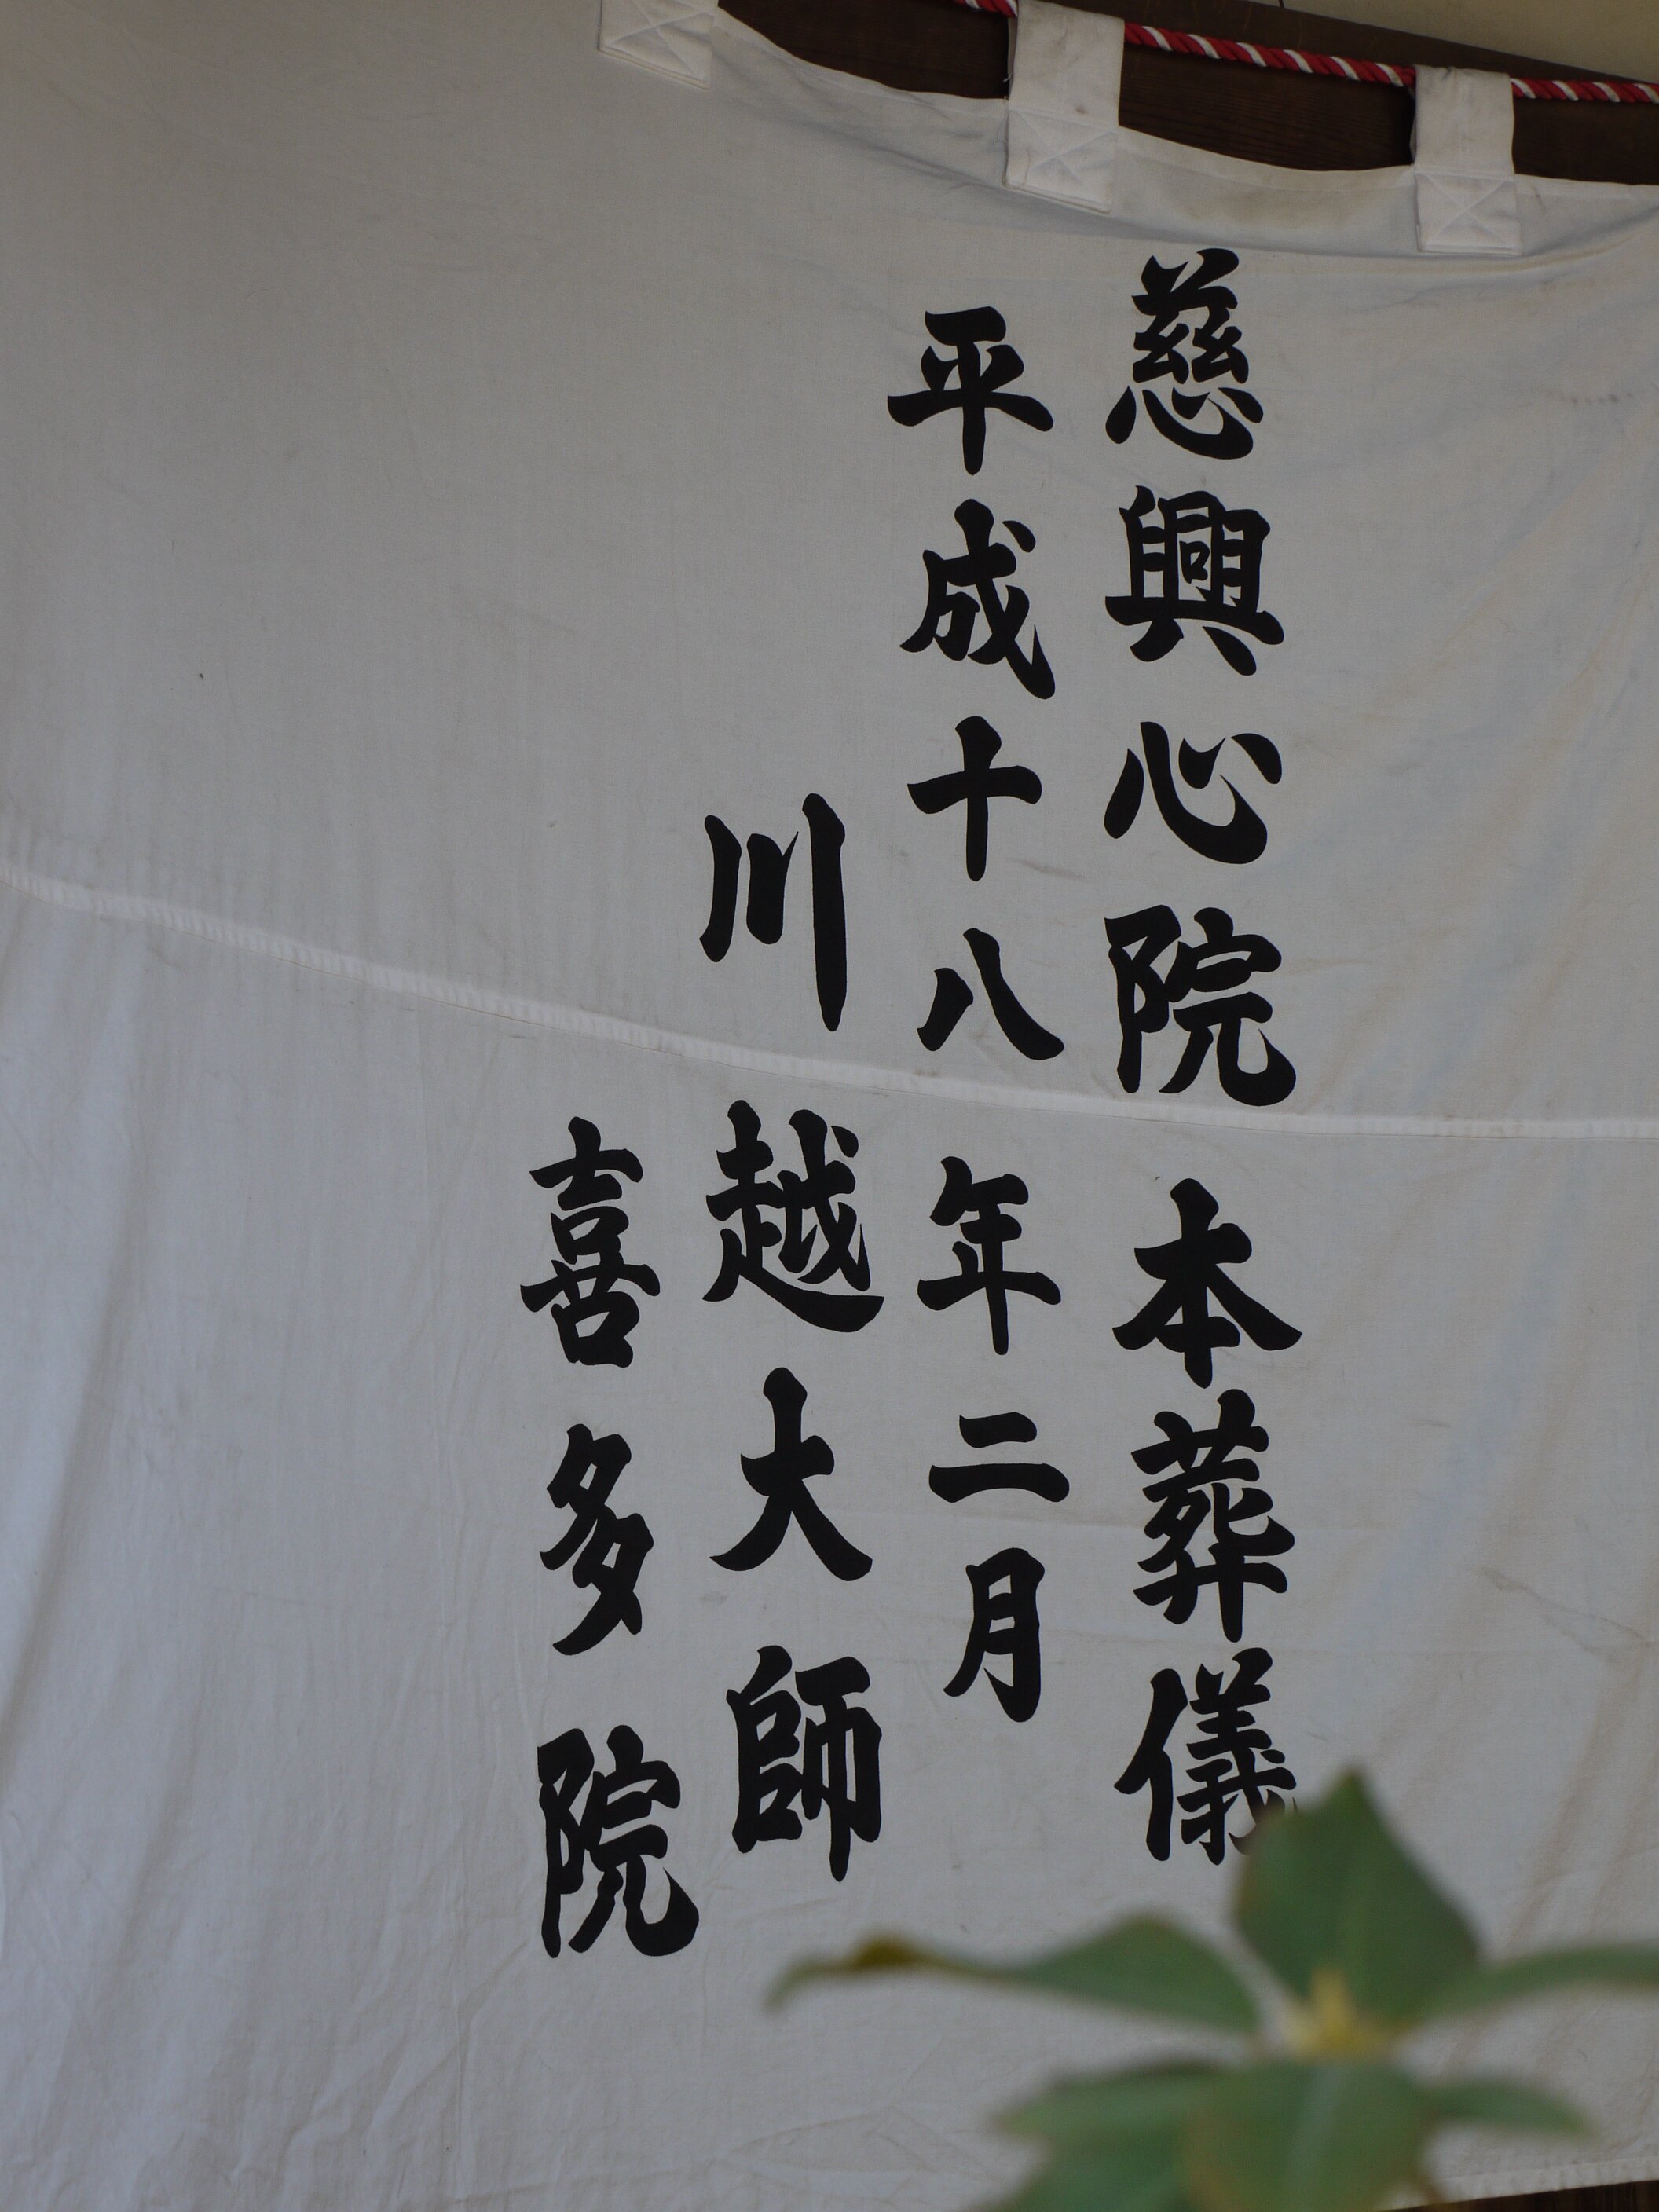 慈興心院本葬儀
平成十八年二月
川越大師
喜多院